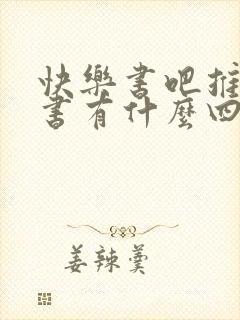 快樂書吧推
書有什麼四
姜辣羹